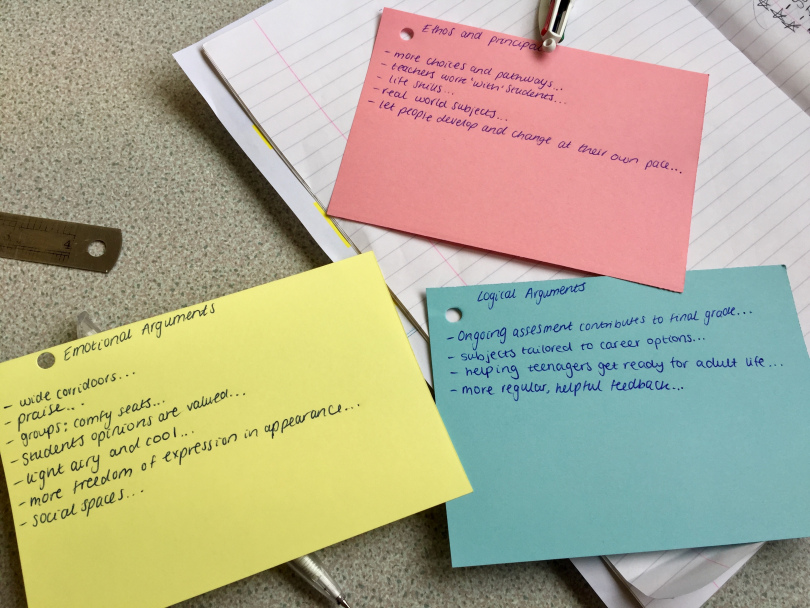 Ethos and principa
- more choices and pathways...
- teachers work 'with' students...
- life skills...
- real world subjects...
- let people develop and change at their own pace...
Emotional Arguments
- wide corridoors...
- praise...
- groups: comfy seats...
- Students opinions are valued...
- light airy and cool...
- more freedom of expression in appearance...
- social spaces...
Logical Arguments
- Ongoing assesment contributes to final grade...
- subjects tailored to career options...
- helping teenagers get ready for adult life...
- more regular, helpful feedback...
4